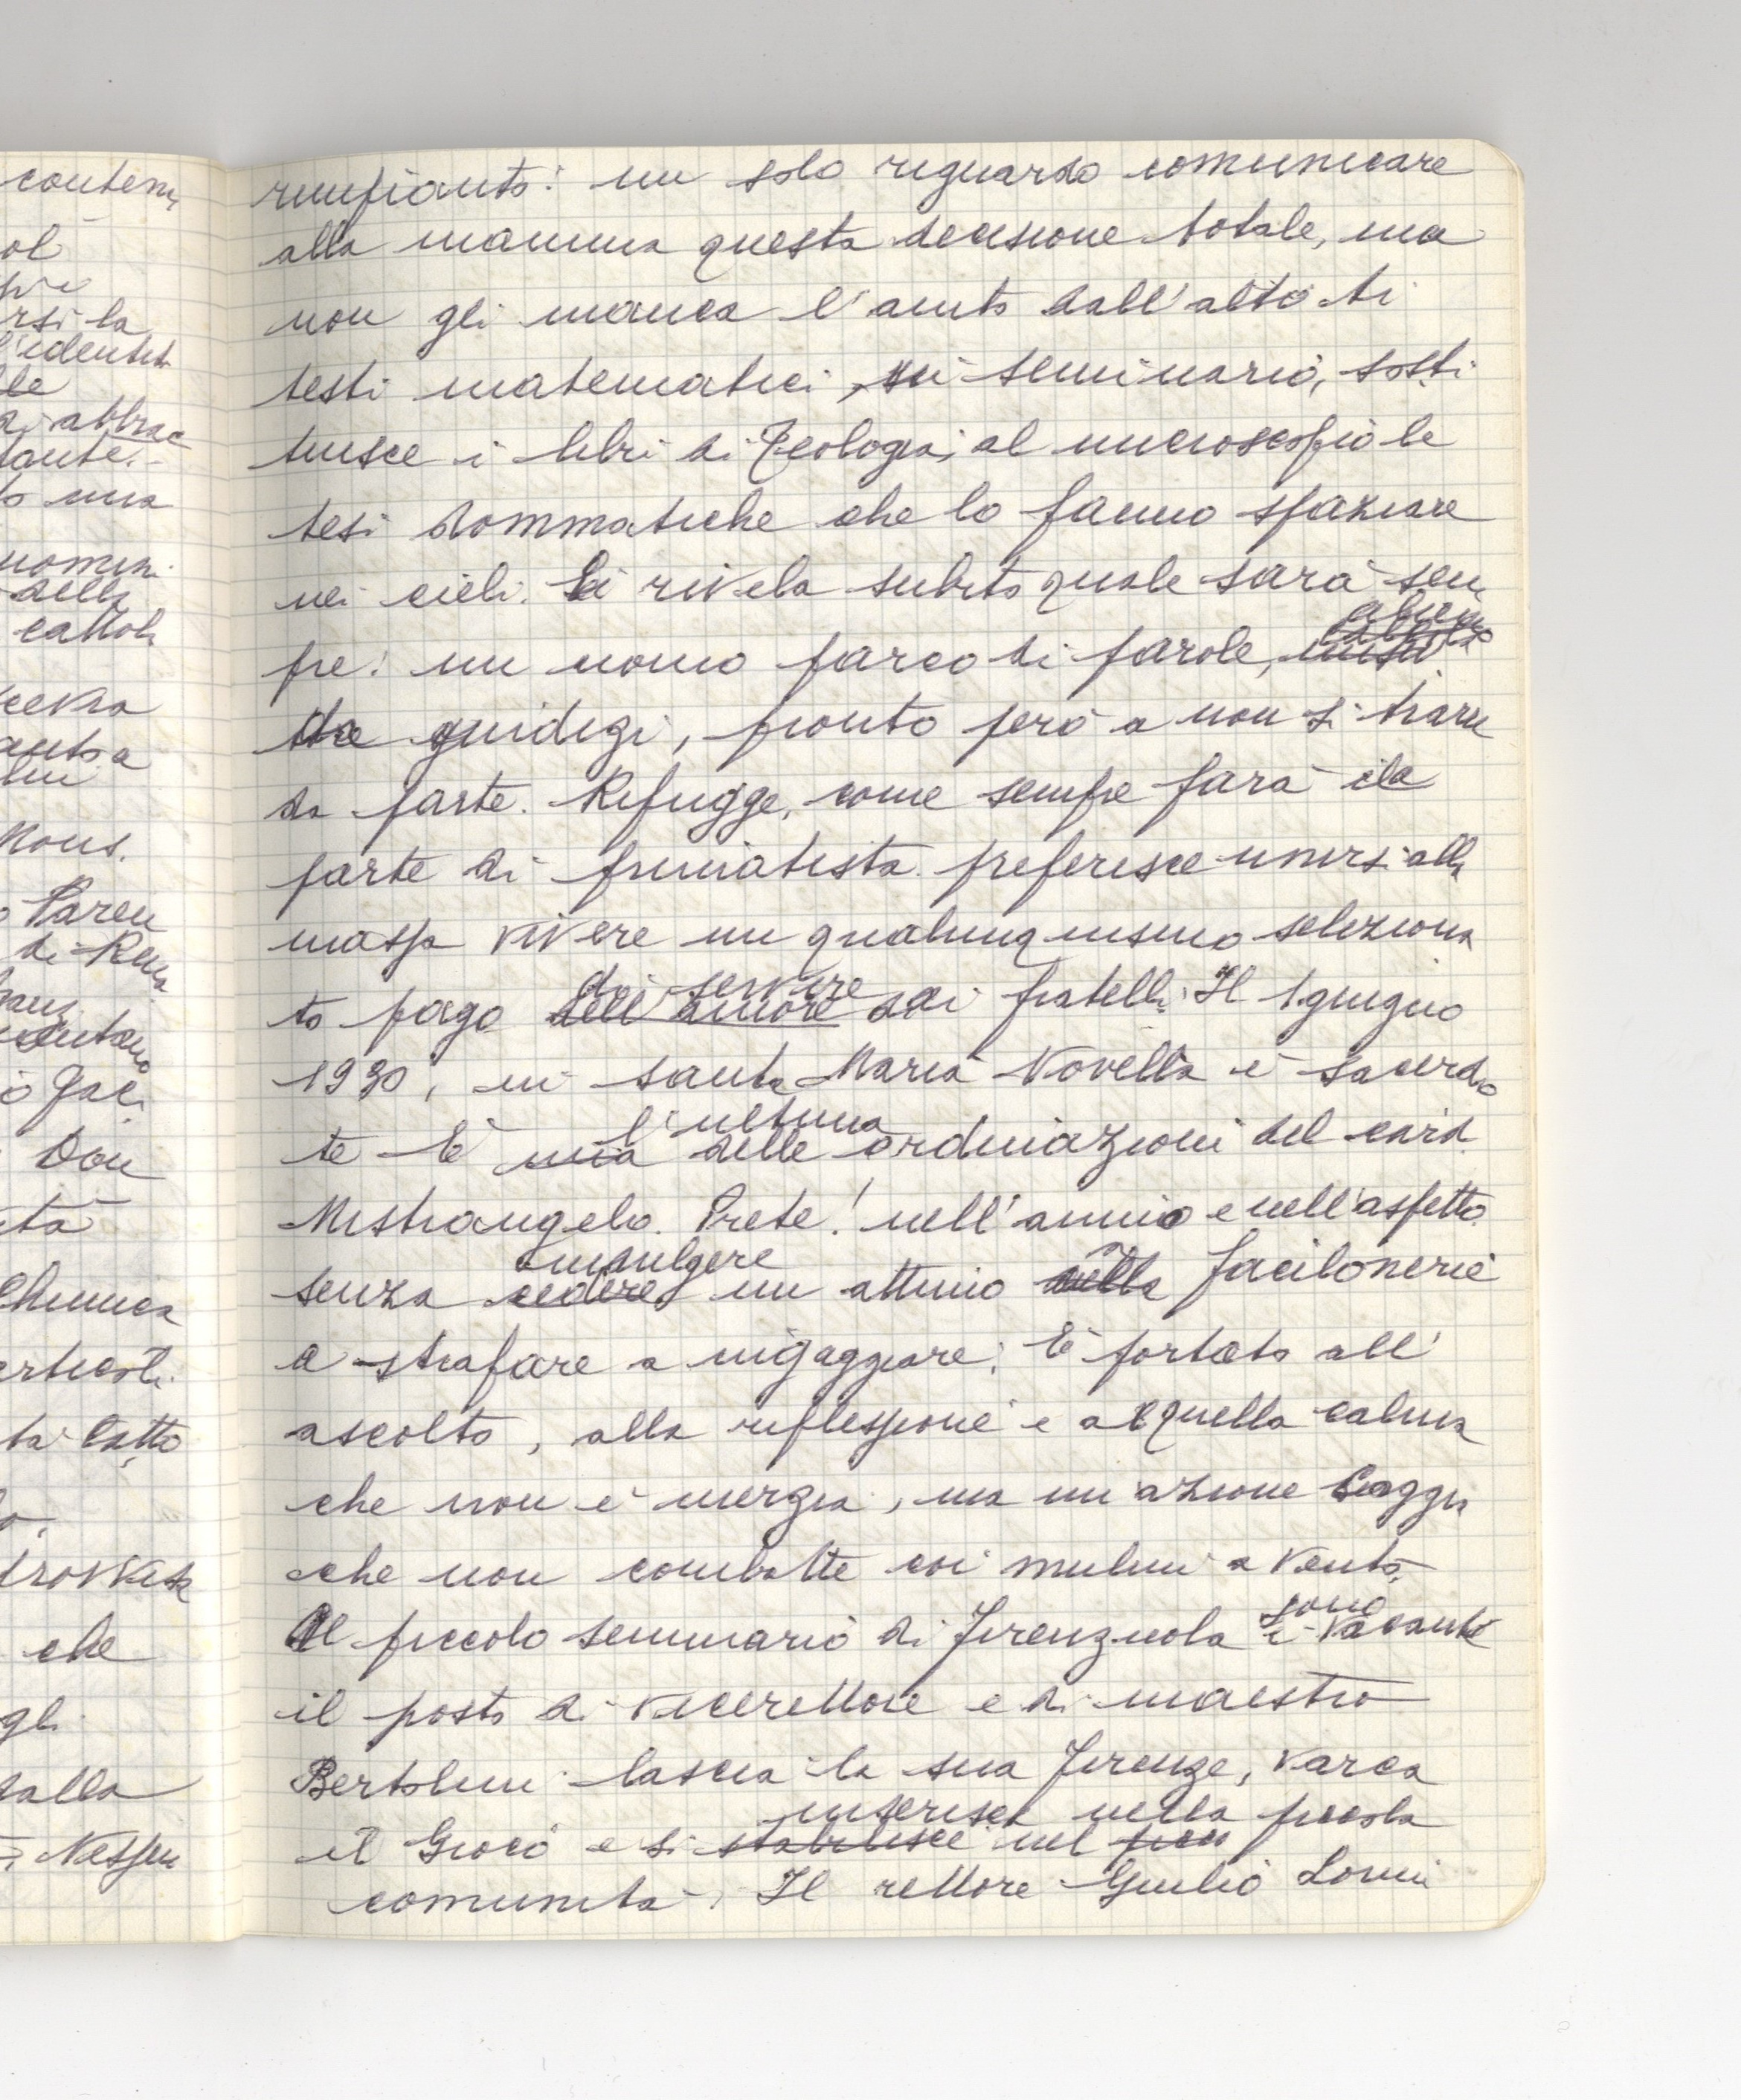 conten
ol
rsi la
l'identit
le
di abbrac
tante.
to una
nomin
della
cattol
lui
Mons.
Paren
di
Don
tà
Chimica
tutto
che
gli
dalla
Nessun
rimpianto: un solo riguardo comunicare
alla mamma questa decisione totale, ma
non gli manca l'aiuto dall'alto. Ai
testi matematici, in seminario, sosti
tuisce i libri di Teologia, al microscopio le
tesi dommatiche che lo fanno spaziare
nei cieli. Si rivela subito quale sarà sem
pre: un uomo parco di parole, alieno
da giudizi, pronto però a non si trarre
da parte. Rifugge, come sempre farà dalla
parte di primatista. preferisce unirsi alla
massa vivere un qualunquismo seleziona
di servire
to pago dell'amore dei fratelli. Il 1 giugno
1930, in santa Maria Novella è sacerdo
l'ultima
te È una delle ordinazioni del card.
Mistrangelo. Prete! nell'animo e nell'aspetto
indulgere
senza cedere un attimo nella facilonerie
a strafare a ingaggiare; È portato all'
ascolto, alla riflessione e a quella calma
che non è inerzia, ma un azione saggia
che non combatte coi mulini a vento.
sono
Al piccolo seminario di Firenzuola è vacante
il posto di vicerettore e di maestro
Bertolini lascia la sua Firenze, varca
inserisce nella piccola
il Giogo e si stabilisce nel picc
comunità. Il rettore Giulio Lorini